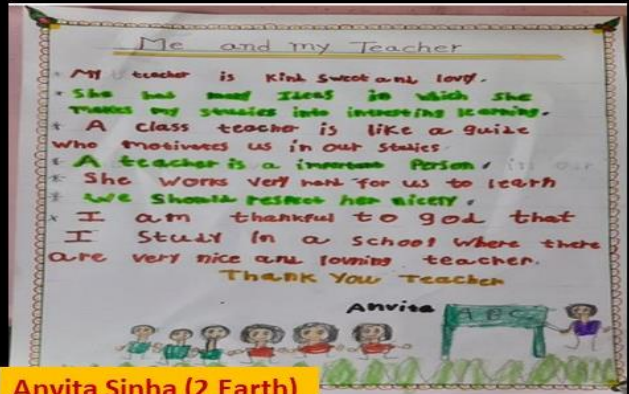 Me and my Teacher
* My teacher is kind sweet and lovy.
* She has many Ideas in which she
makes my studies into interesting learning.
* A class teacher is like a guide
who motivates us in our studies
* A teacher is a important Person, in our
* She works very hard for us to learn
* We should respect her nicely.
* I am thankful to god that
I study in a school where there
are very nice and lovning teacher.
Thank You Teacher
Anvita
A B C
Anvita Sinha (2 Earth)